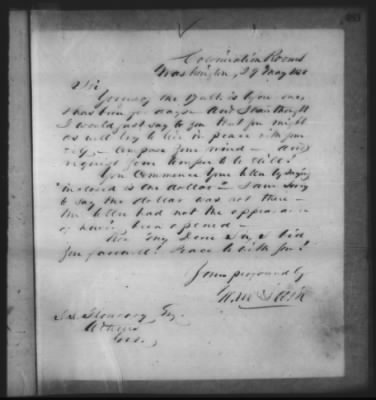 Colonization Rooms
Washington, 29 May
Sir
Yours of the 17th is before me,
has been for days - and I have thought
I would just say to you that you might
as well try to live in peace with your
- Compose your mind - and
request your temper to be still!
You Commence your letter by saying
"inclosed is one dollar" - I am sorry
to say the dollar was not there -
the letter had not the appearance
of having been opened -
Now my Dear Sir, I bid
you farewell! Peace be with you!
Yours profoundly
W. Mc Lain
Jas. Flournoy Esq.
Athens
Geo.